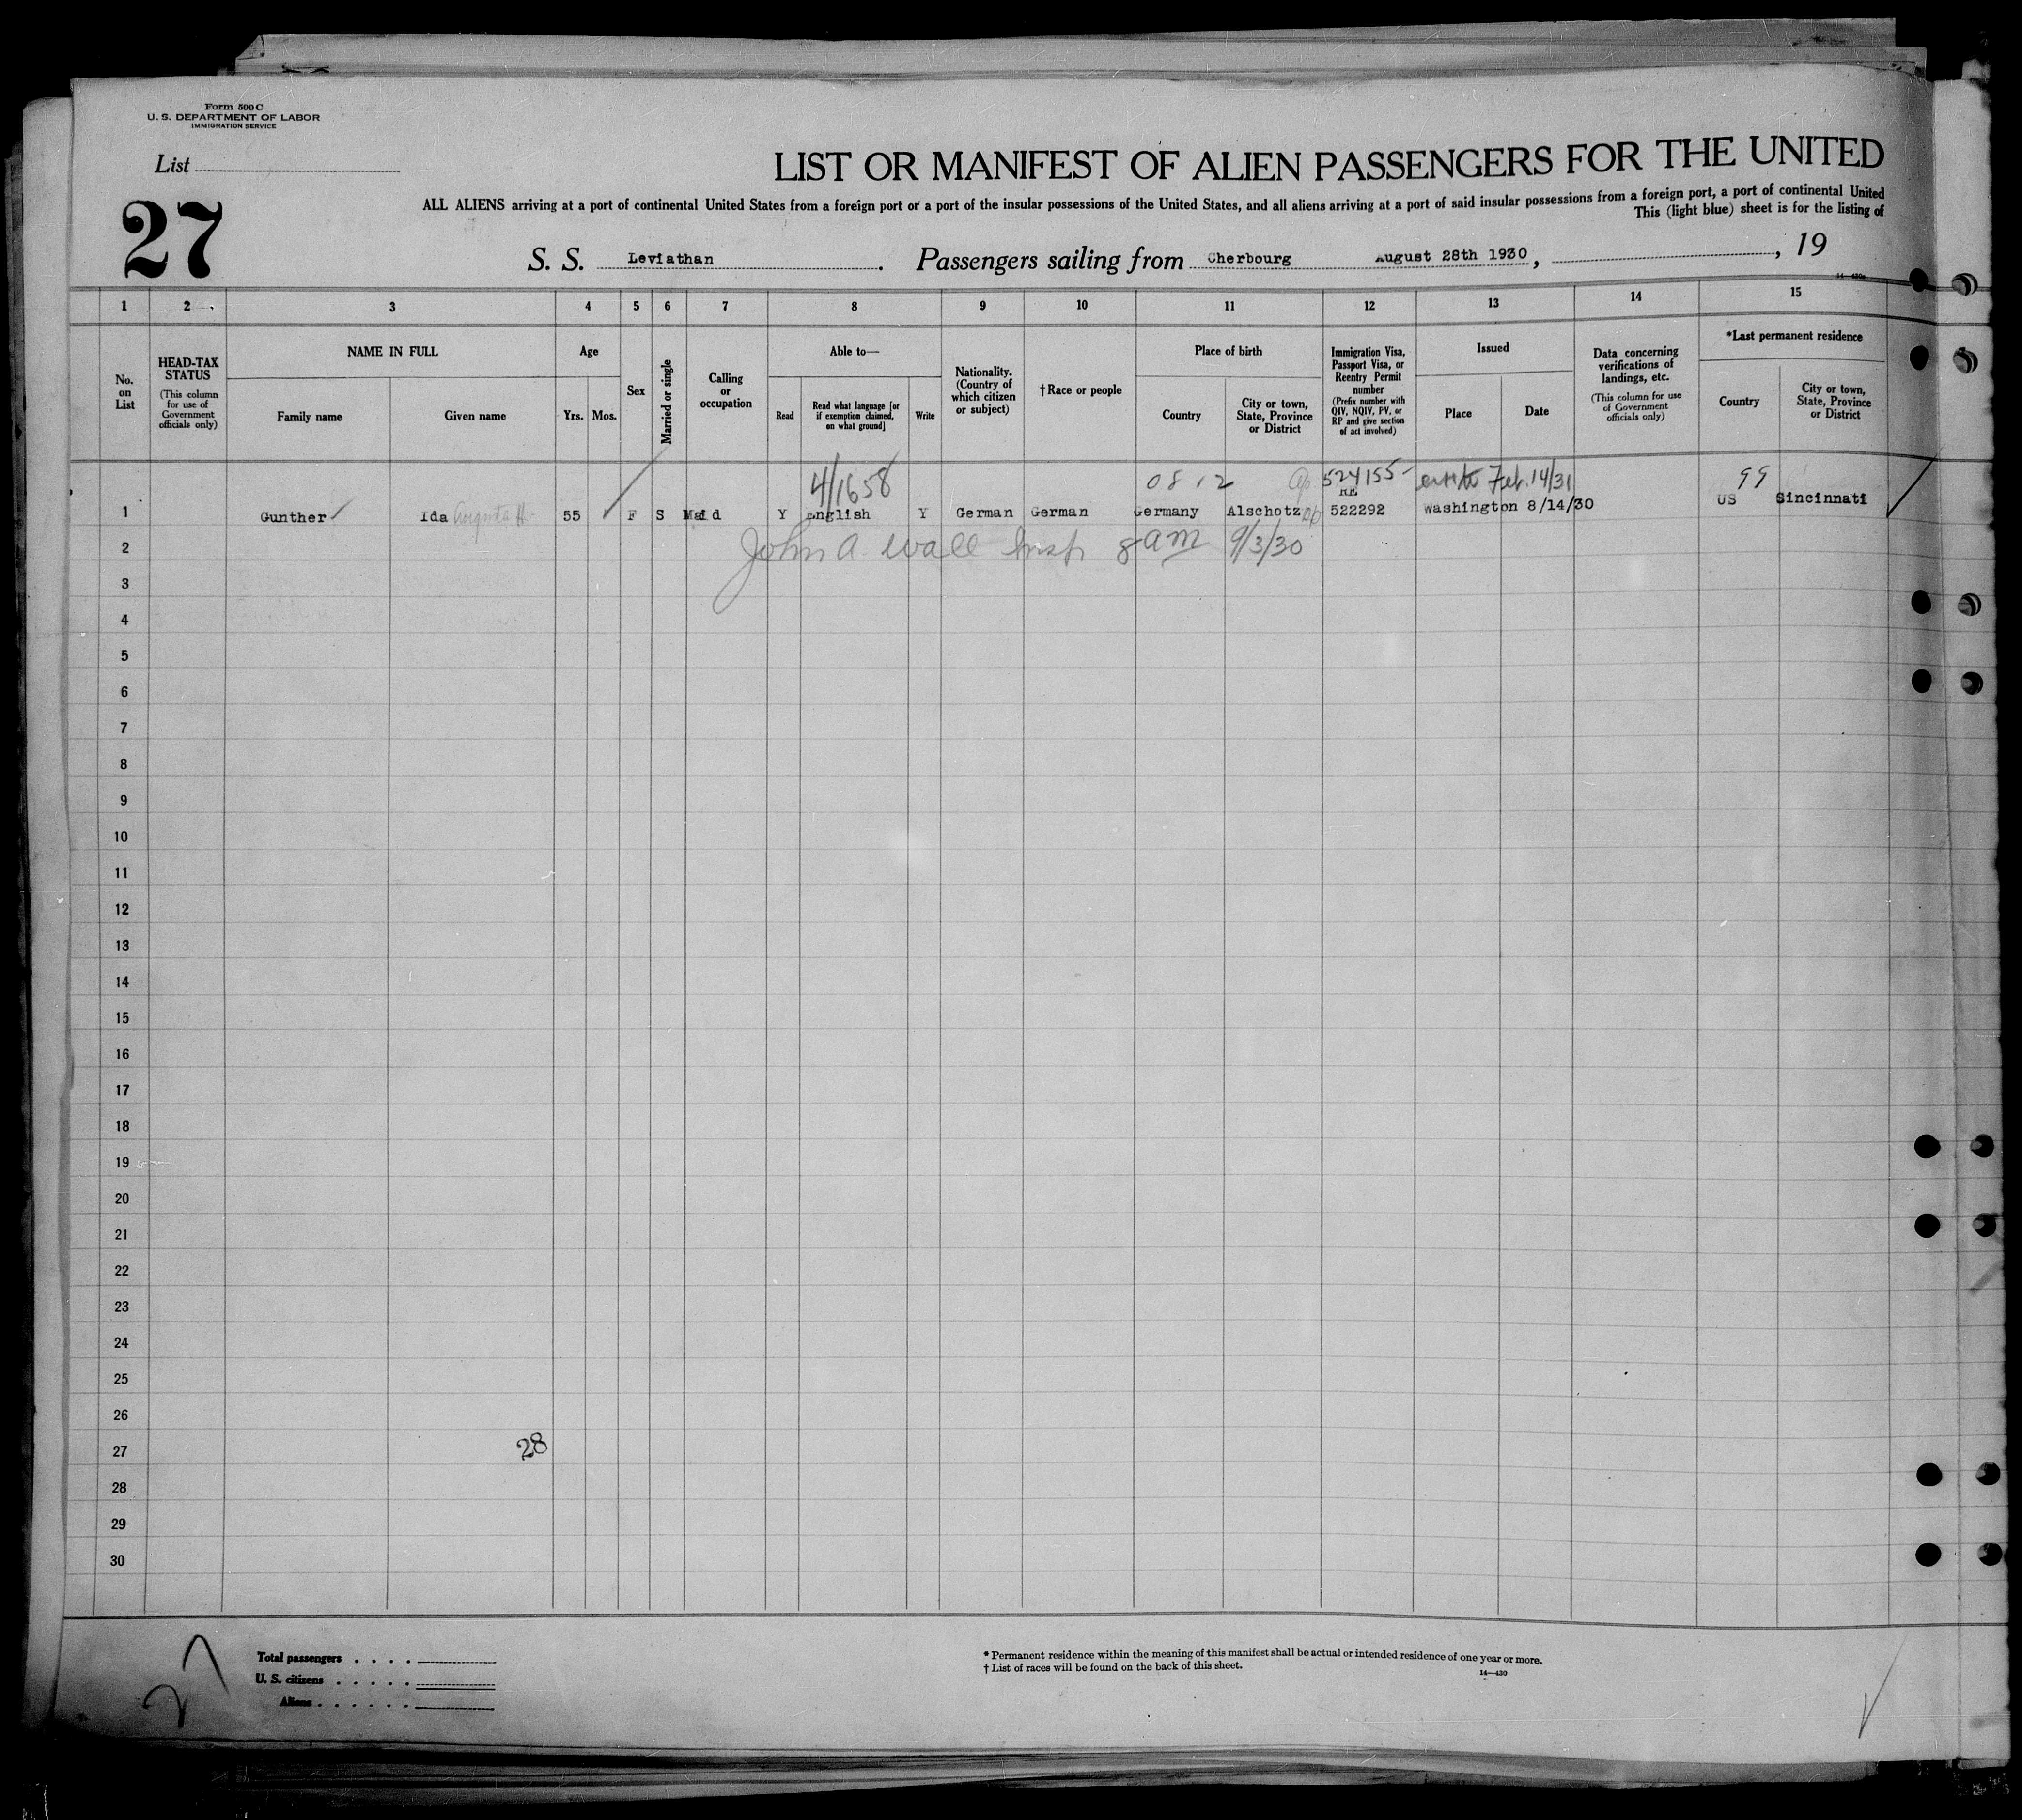 Form 500 C
U. S. DEPARTMENT OF LABOR
IMMIGRATION SERVICE
List
27
LIST OR MANIFEST OF ALIEN PASSENGERS FOR THE UNITED
ALL ALIENS arriving at a port of continental United States from a foreign port or a port of the insular possessions of the United States, and all aliens arriving at a port of said insular possessions from a foreign port, a port of continental United
This (light blue) sheet is for the listing of
S. S. Leviathan . Passengers sailing from Cherbourg August 28th 1930 , , 19
14—430a
1 2 3 4 5 6 7 8 9 10 11 12 13 14 15
No. on List
HEAD-TAX STATUS
(This column for use of Government officials only)
NAME IN FULL
Family name
Given name
Age
Yrs.
Mos.
Sex
Married or single
Calling or occupation
Able to—
Read
Read what language [or if exemption claimed, on what ground]
Write
Nationality. (Country of which citizen or subject)
† Race or people
Place of birth
Country
City or town, State, Province or District
Immigration Visa, Passport Visa, or Reentry Permit number
(Prefix number with QIV, NQIV, PV, or RP and give section of act involved)
Issued
Place
Date
Data concerning verifications of landings, etc.
(This column for use of Government officials only)
*Last permanent residence
Country
City or town, State, Province or District
4/1658 08 12 524155 Feb. 14/31 99
RE
1 Gunther Ida Augusta H. 55 F S Maid Y English Y German German Germany Alschotz 522292 Washington 8/14/30 US Sincinnati
2 John A. Wall Insp 8 am 9/3/30
3
4
5
6
7
8
9
10
11
12
13
14
15
16
17
18
19
20
21
22
23
24
25
26
27 28
28
29
30
27
Total passengers . . . .
U. S. citizens . . . . .
Aliens . . . . . .
* Permanent residence within the meaning of this manifest shall be actual or intended residence of one year or more.
† List of races will be found on the back of this sheet.
14—430